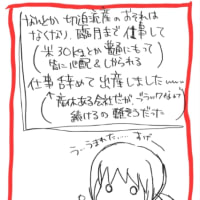 なんとか切迫流産のおそれは
なくなり、臨月まで仕事して
(米30kgとか普通にもって
皆に心配&しかられる
仕事辞めて出産しました……
(↑産休ある会社だが、ブラックなので
続けるの難きろだった
うーうまれた……すげ